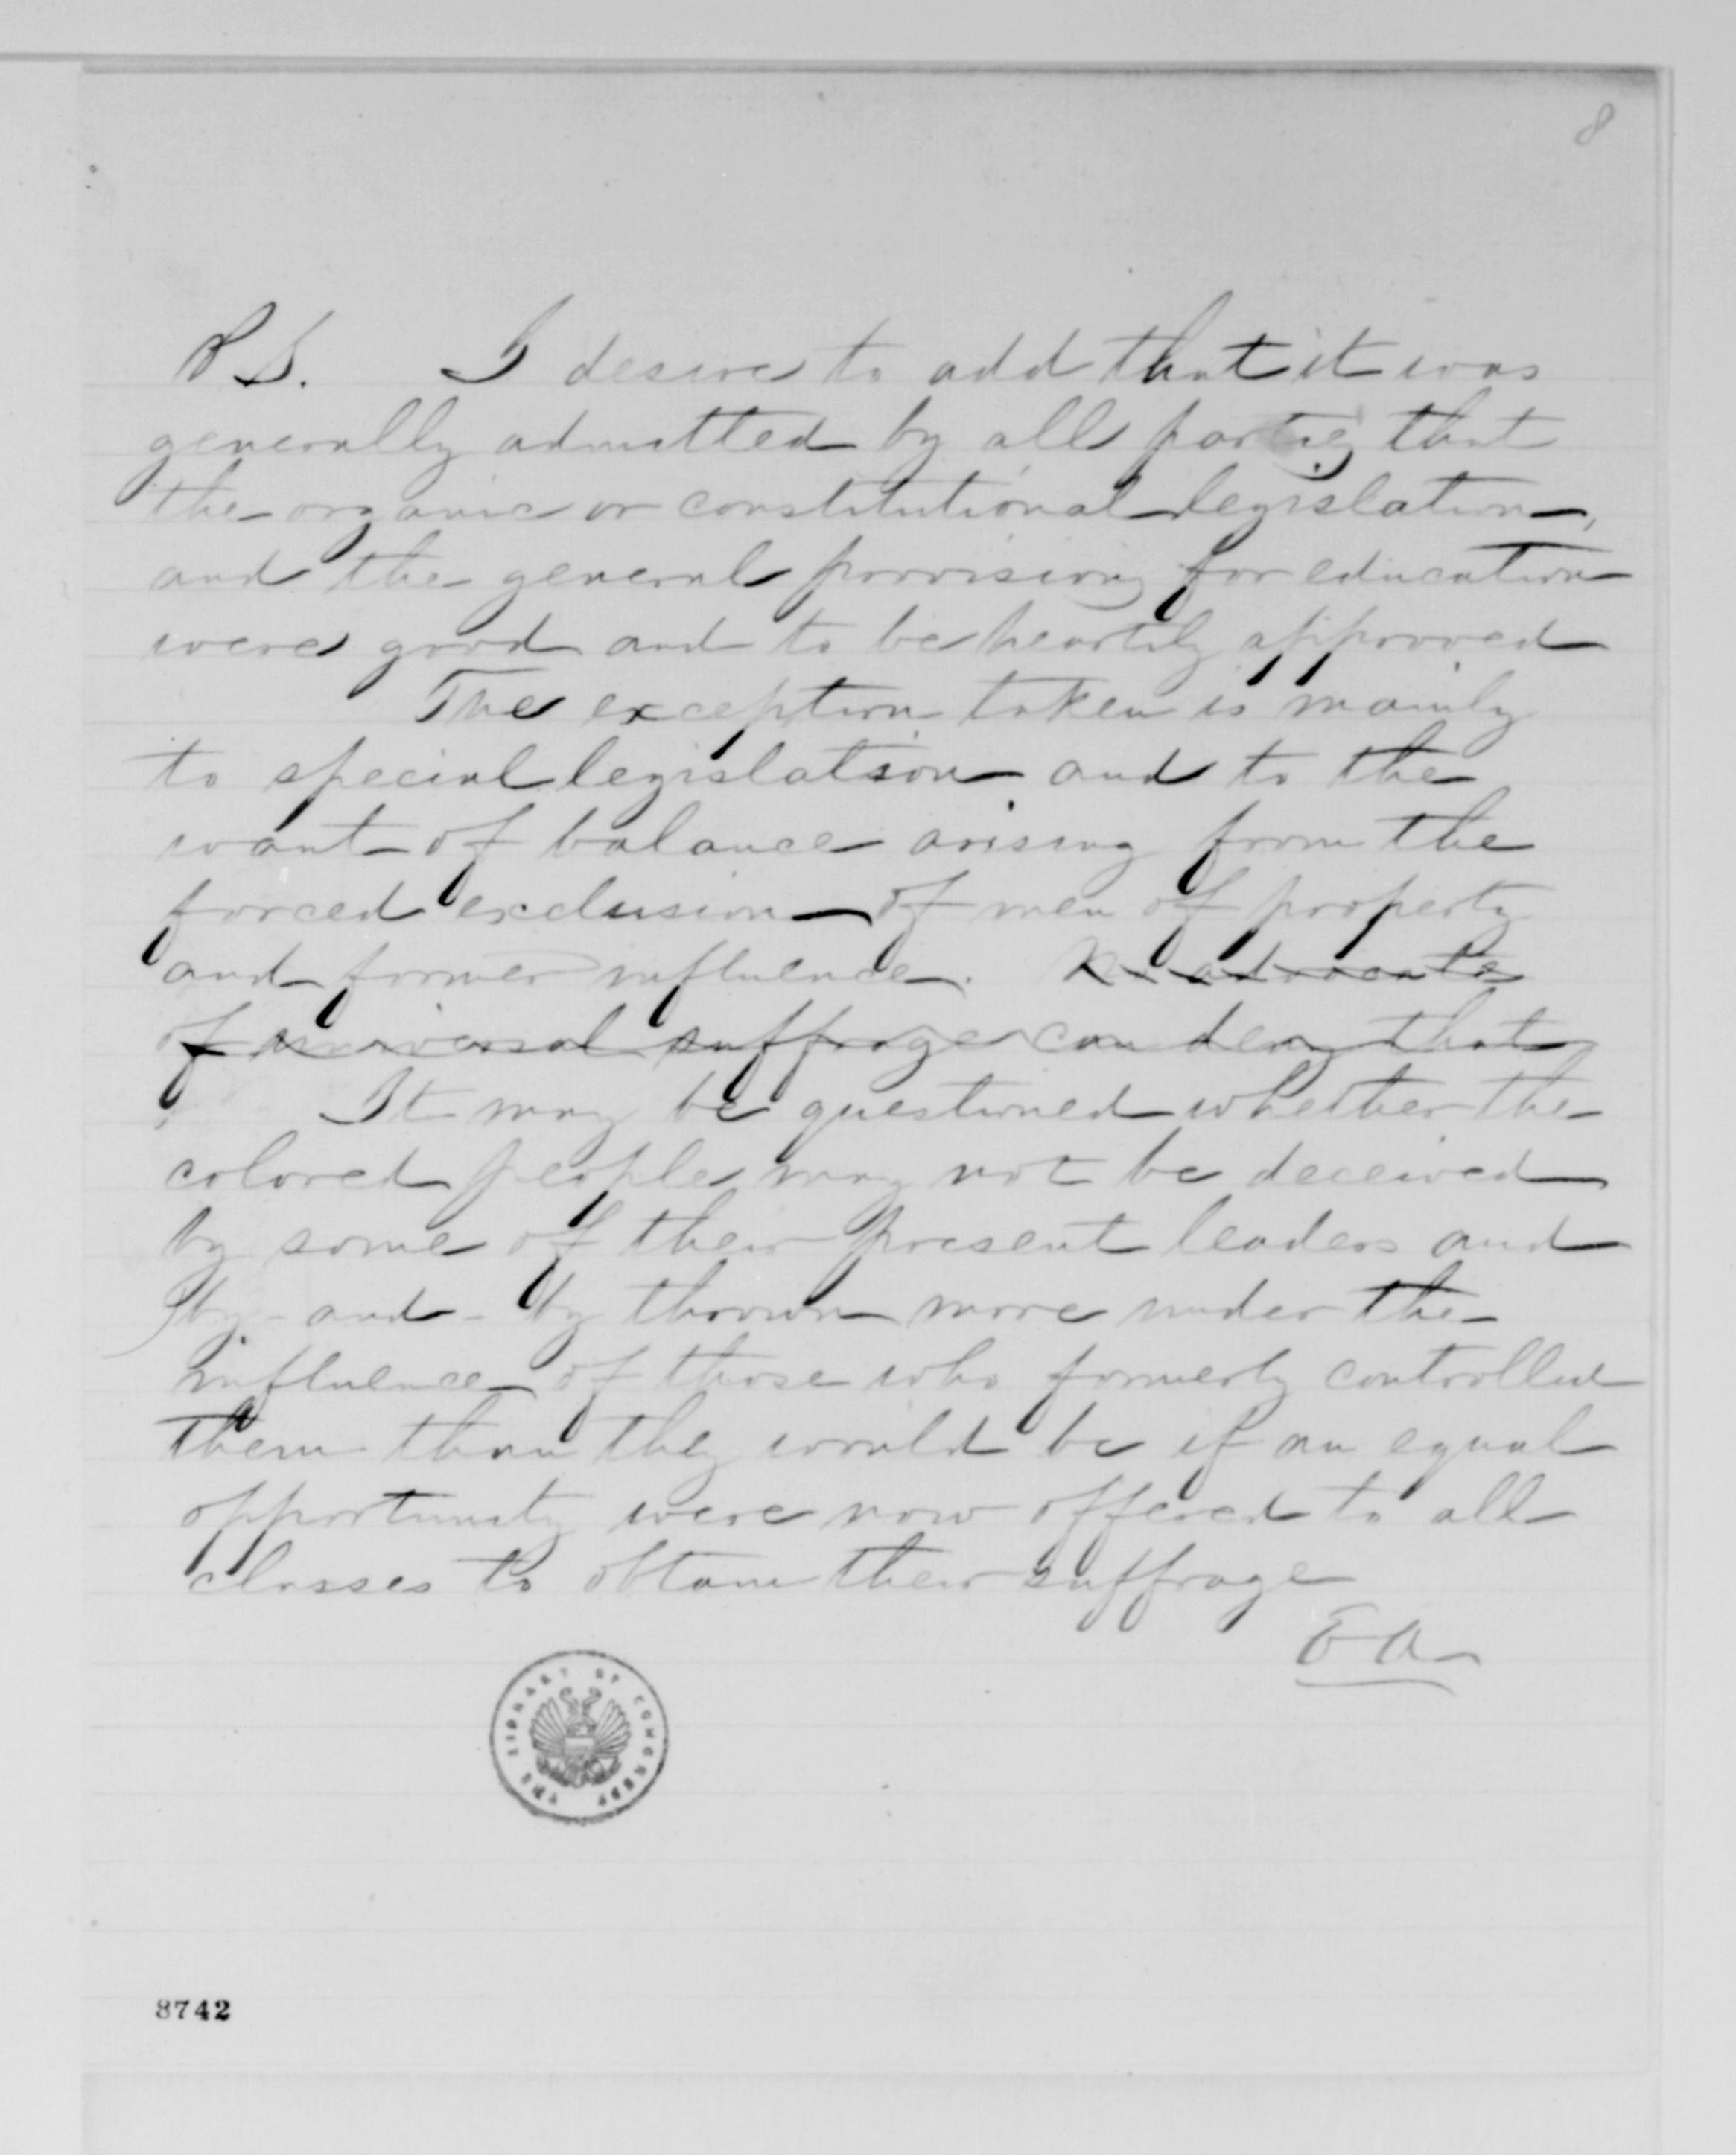 8
P S. I desire to add that it was
generally admitted by all parties that
the organic or constitutional legislation,
and the general provisions for education
were good and to be heartily approved
The exception taken is mainly
to special legislation and to the
want of balance arising from the
forced exclusion of men of property
and former influence. No advocate
of universal suffrage can deny that
It may be questioned whether the
colored people may not be deceived
by some of their present leaders and
by-and-by thrown more under the
influence of those who formerly controlled
them than they would be if an equal
opportunity were now offered to all
classes to obtain their suffrage
E A
THE LIBRARY OF CONGRESS
8742